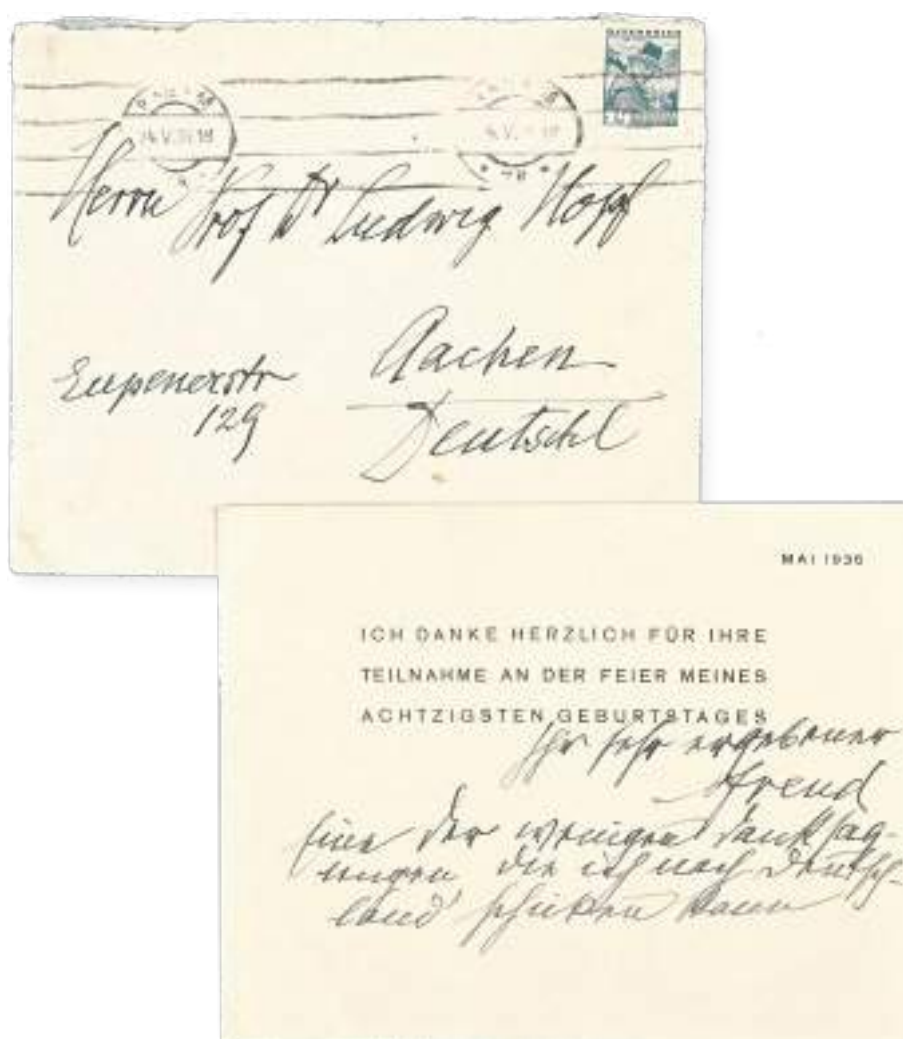 ÖSTERREICH
Herrn Prof Dr Ludwig Hopf
Aachen
Eupenerstr
129
Deutschl
MAI 1936
ICH DANKE HERZLICH FÜR IHRE
TEILNAHME AN DER FEIER MEINES
ACHTZIGSTEN GEBURTSTAGES
Ihr sehr ergebener
Freud
Eine der wenigen Danksag-
ungen die ich nach Deutsch-
land schicken kann